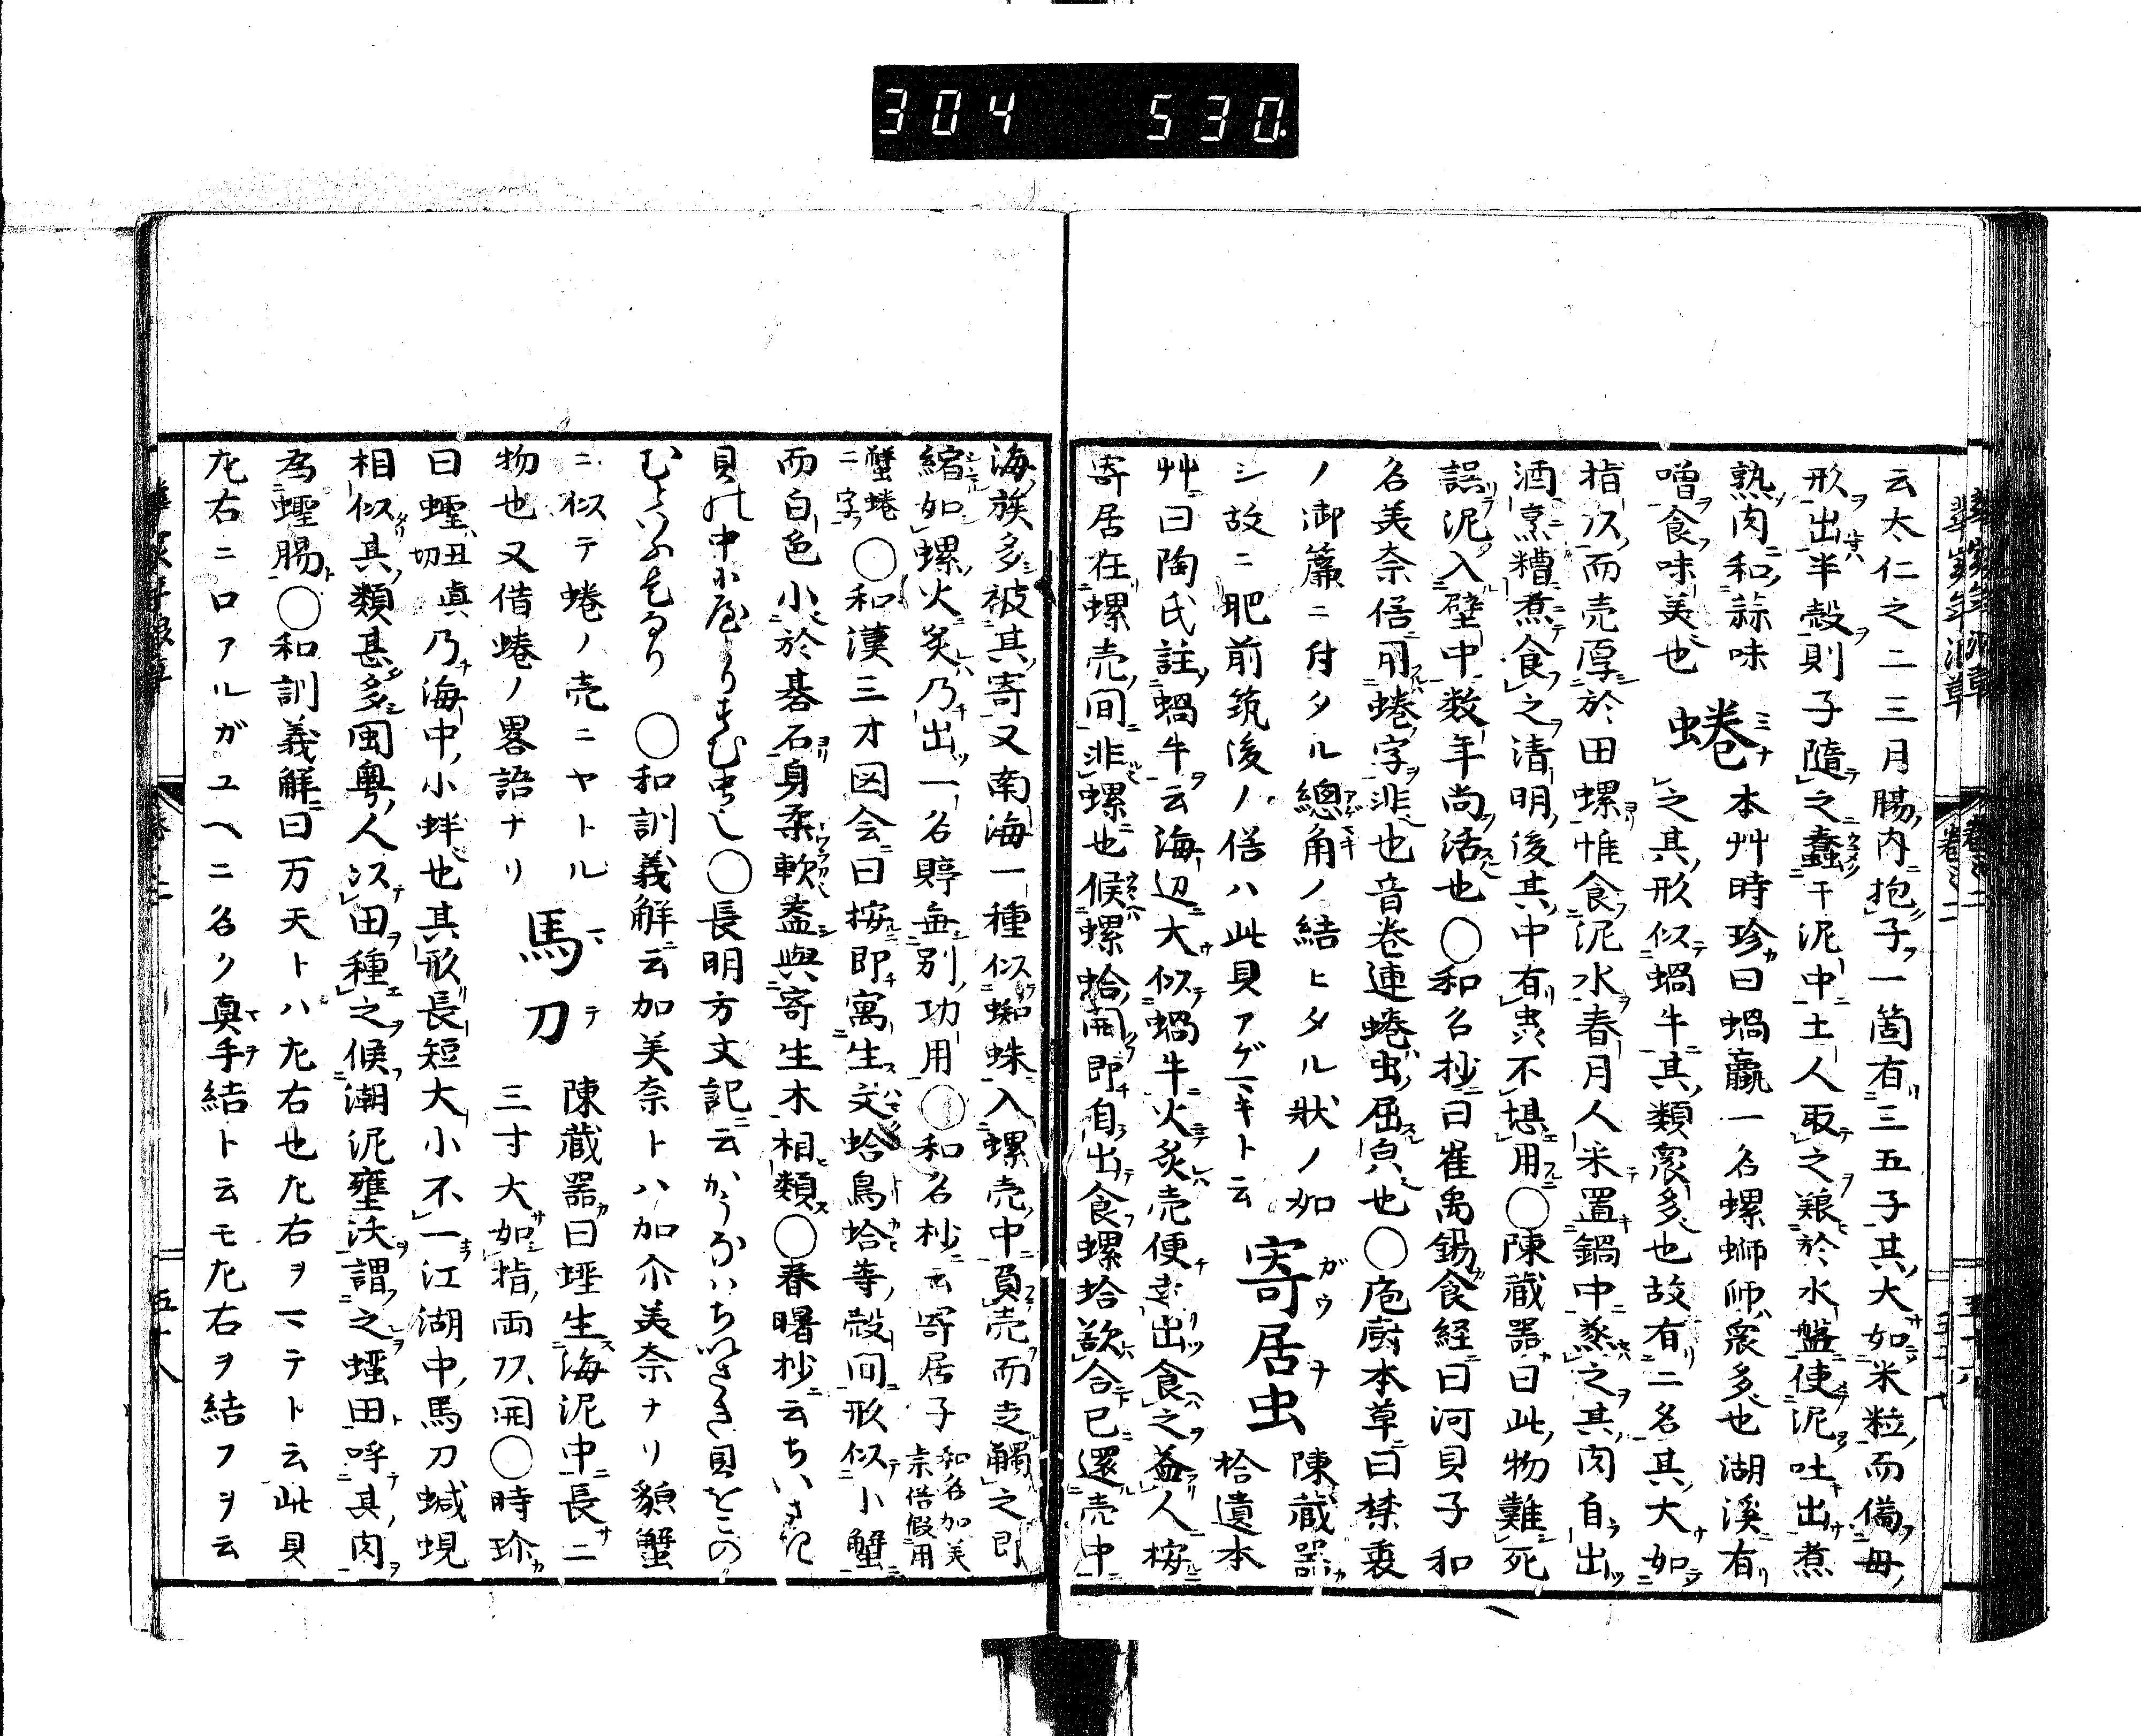 304 530
云太仁之二三月腸内抱子一箇有三五子其大如米粒而備母
形出半殻則子随之蠢于泥中土人取之粮於水盤使泥吐出煮
熟肉和蒜味
噌食味美也
蜷 ミナ
本艸時珍曰蝸蠃一名螺螄師衆多也湖溪有
之其形似蝸牛其類衆多也故有二名其大如
指以而売厚於田螺惟食泥水春月人米置鍋中蒸之其肉自出
酒烹糟煮食之清明後其中有虫不堪用〇陳蔵器曰此物難死
誤泥入壁中数年尚活也〇和名抄曰崔禹錫食経曰河貝子和
名美奈俗用蜷字非也音巻連蜷虫屈皃也〇庖厨本草曰禁裏
ノ御簾ニ付タル總角ノ結ヒタル状ノ如
シ故ニ肥前筑後ノ俗ハ此貝アゲマキト云
寄居虫 ガウナ
陳蔵器
拾遺本
艸曰陶氏註蝸牛云海辺大似蝸牛火炙売便走出食之益人按
寄居在螺売間非螺也候螺蛤開即自出食螺蛤欲合已還売中
海族多被其寄又南海一種似蜘蛛入螺売中負売而走觸之即
縮如螺火炙乃出一名䗔無別功用〇和名抄云寄居子
和名加美
奈俗假用
蟹蜷
二字
〇和漢三才図会曰按即寓生文蛤鳥蛤等殻間形似小蟹
而白色小於碁石身柔軟蓋與寄生木相類〇春曙抄云ちいさき
貝の中に屋りすむ虫し〇長明方文記云かうなハちいさき貝をこの
むといふ是なり 〇和訓義解云加美奈トハ加尓美奈ナリ貌蟹
ニ似テ蜷ノ売ニヤトル
物也又借蜷ノ畧語ナリ
馬刀 マテ
陳蔵器曰蟶生海泥中長二
三寸大如指両頭開〇時珍
曰蟶丑真切乃海中小蚌也其形長短大小不一江湖中馬刀蝛蜆
相似其類甚多閩粤人以田種之候潮泥壅沃謂之蟶田呼其肉
為蟶腸〇和訓義解曰万天トハ左右也左右ヲマテト云此貝
左右ニ口アルガユヘニ名ク真手結ト云モ左右ヲ結フヲ云